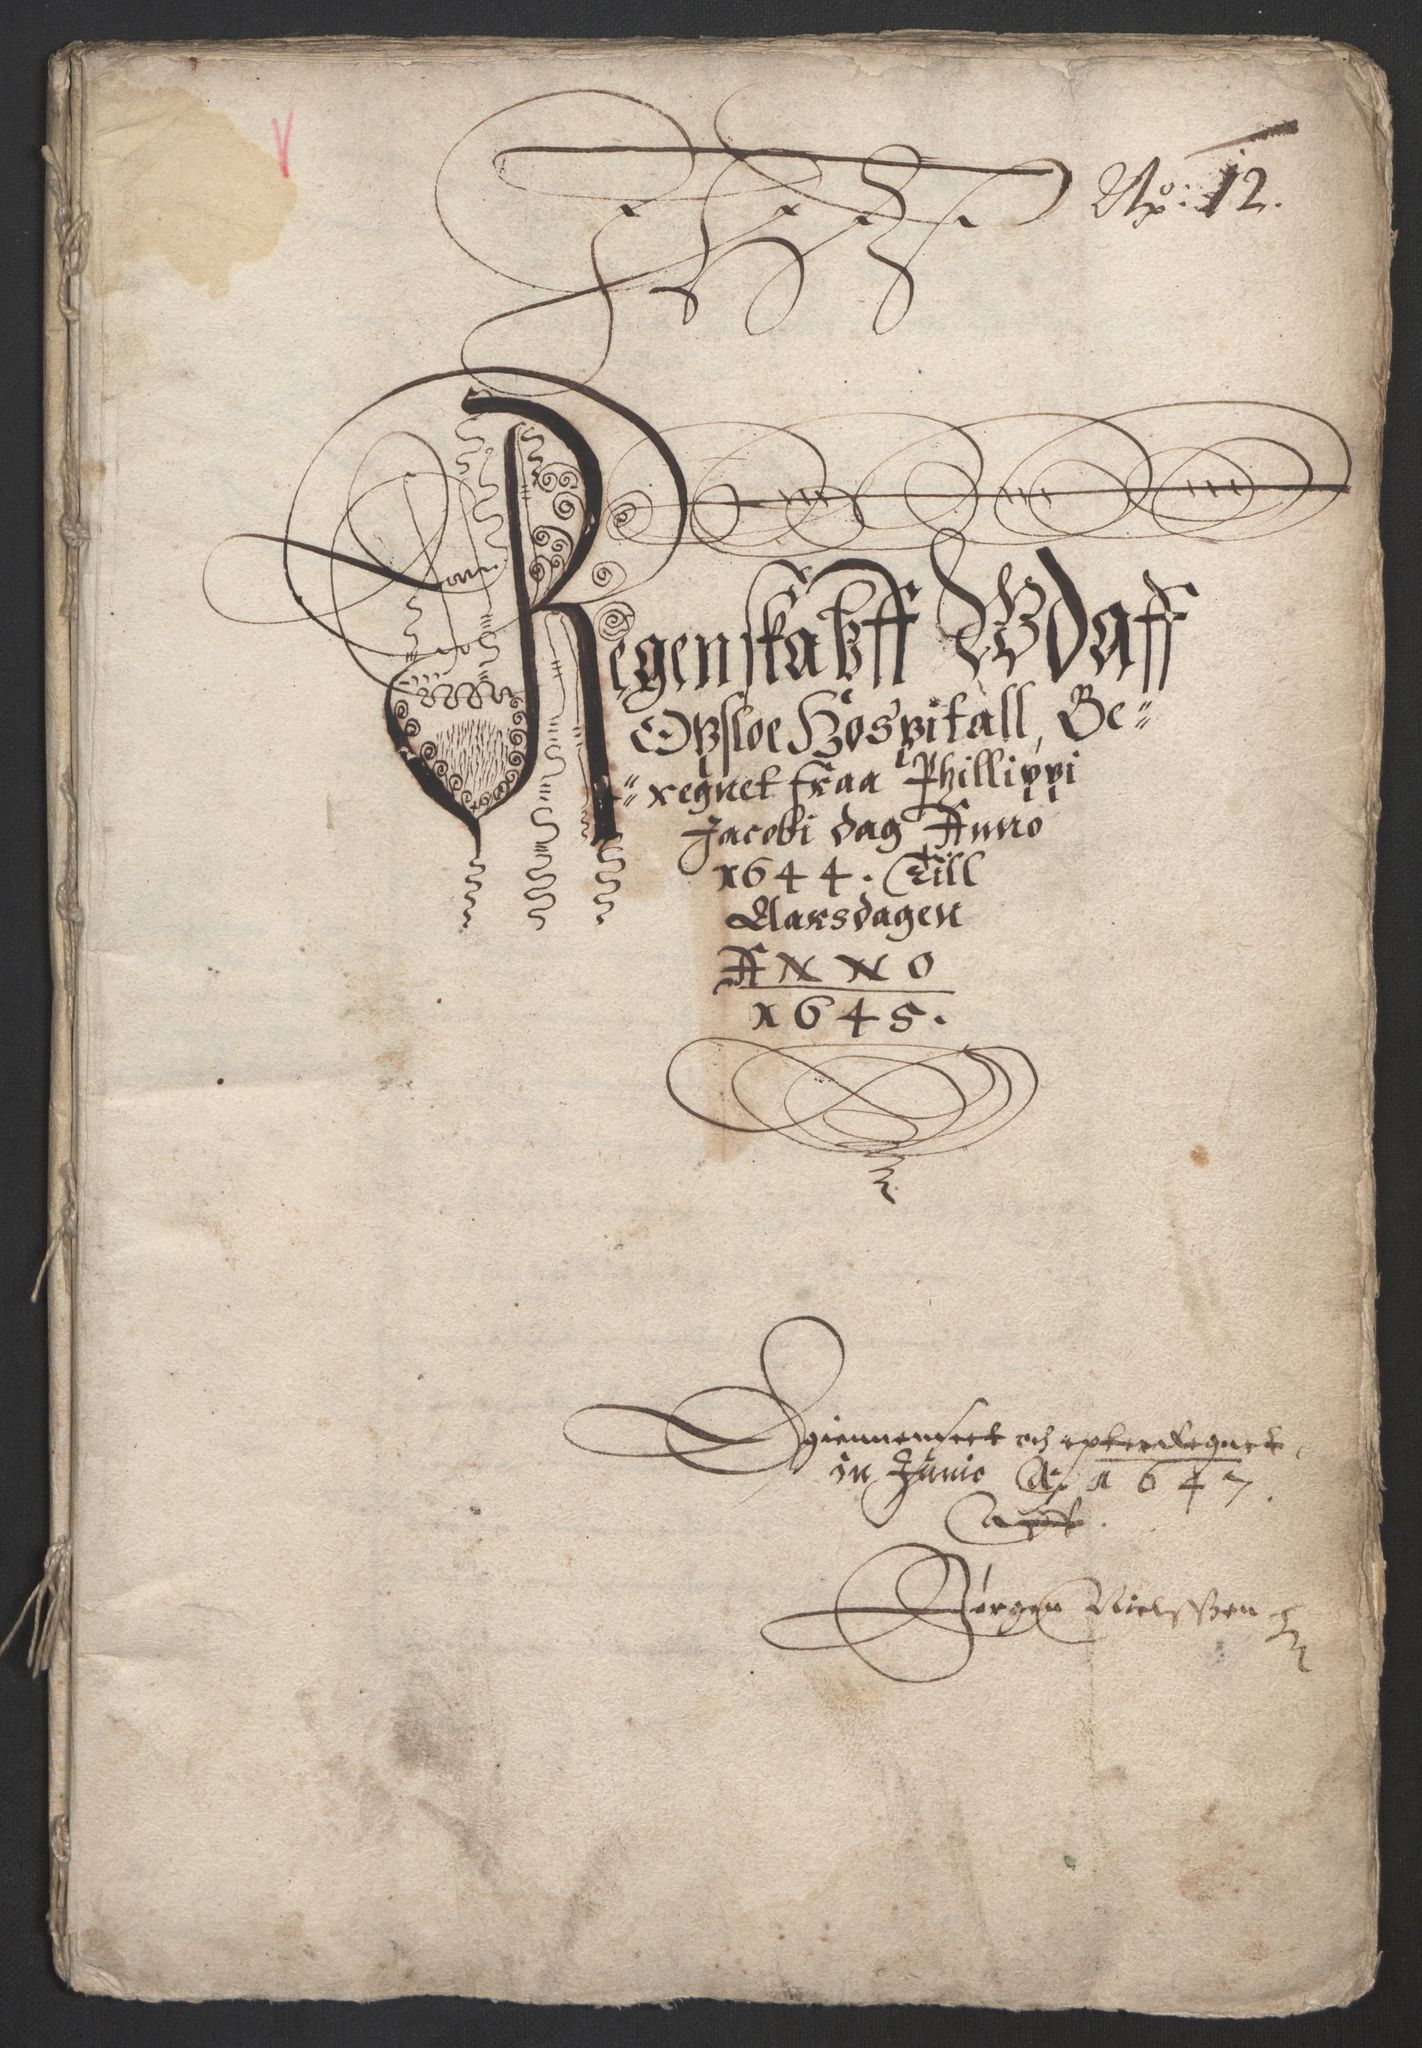 No: 12.
Regenskabff Wdaff
Opsloe Hospitall, Be=
=regnet fraa Phillippi
Jacobi dag Anno
1644. Till
Aarsdagen
ANNO
1645.
Igiennemseet och epterregnet
in Junio Ao 1647.
aff
Jørgen Nielssen